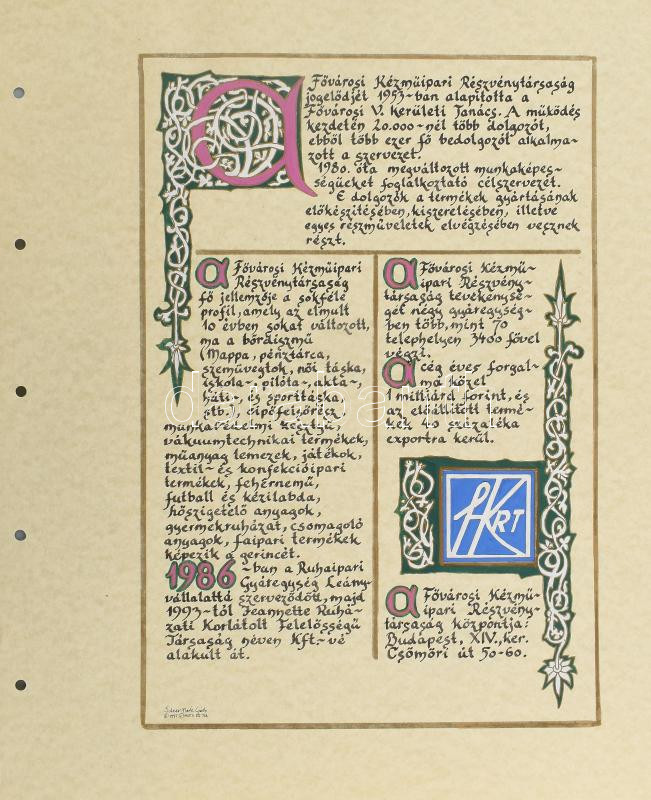 A Fővárosi Kézműipari Részvénytársaság
jogelődjét 1953-ban alapította a
Fővárosi V. kerületi Tanács. A működés
kezdetén 20.000-nél több dolgozót,
ebből több ezer fő bedolgozót alkalma-
zott a szervezet.
1980. óta megváltozott munkaképes-
ségüeket foglalkoztató célszervezet.
E dolgozók a termékek gyártásának
előkészítésében, kiszerelésében, illetve
egyes részműveletek elvégzésében vesznek
részt.
A Fővárosi Kézműipari
Részvénytársaság
fő jellemzője a sokféle
profil, amely az elmult
10 évben sokat változott,
ma a bőrdíszmű
(Mappa, pénztárca,
szemüvegtok, női táska,
iskola-, pilóta-, akta-,
háti-, és sporttáska,
stb.), cipőfelsőrész,
munkavédelmi kesztyű,
vákuumtechnikai termékek,
műanyag lemezek, játékok,
textil- és konfekcióipari
termékek, fehérnemű,
futball és kézilabda,
hőszigetelő anyagok,
gyermekruházat, csomagoló
anyagok, faipari termékek
képezik a gerincét.
1986-ban a Ruhaipari
Gyáregység Leány-
vállalattá szerveződött, majd
1993-tól Jeannette Ruhá-
zati Korlátolt Felelősségű
Társaság néven Kft.-vé
alakult át.
A Fővárosi Kézmű-
ipari Részvény-
társaság tevékenysé-
gét négy gyáregység-
ben több, mint 70
telephelyen 3400 fővel
végzi.
A cég éves forgal-
ma közel
1 milliárd forint, és
az előállított termé-
kek 40 százaléka
exportra kerül.
FKRT
A Fővárosi Kézmű-
ipari Részvény-
társaság központja:
Budapest, XIV., ker.
Csömöri út 50-60.